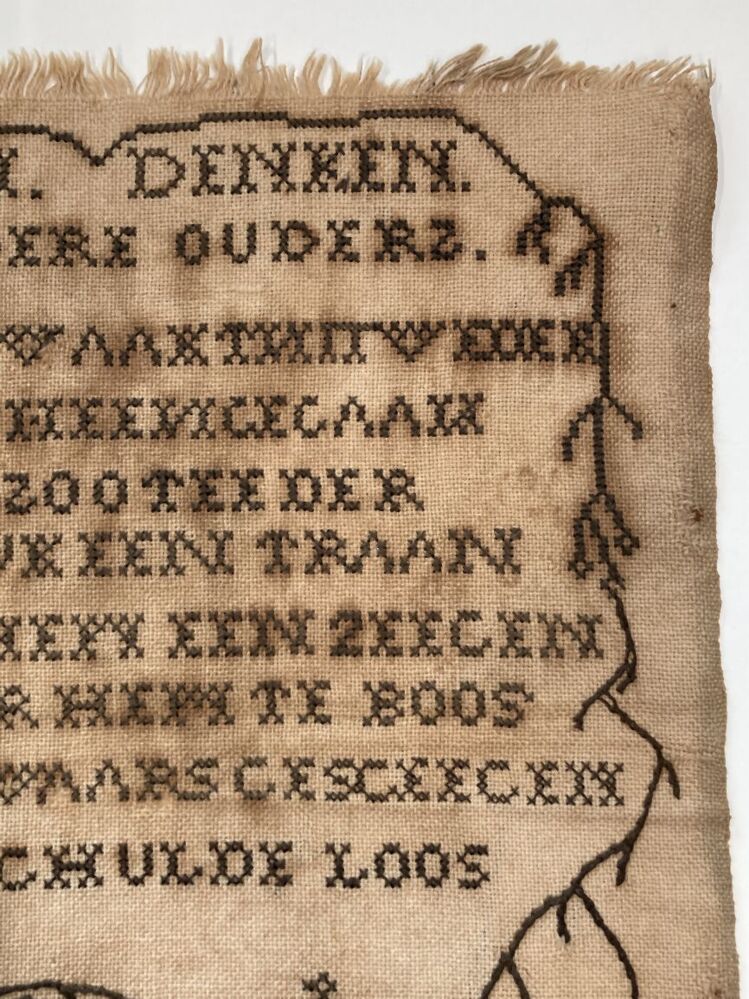 DENKEN.
DERE OUDERS.
WAAKTNIT WEDER
HEENGEGAAN
ZOO TEEDER
EEN TRAAN
HEM EEN ZEEGEN
R HEM TE BOOS
WAARS GESTEEGEN
CHULDE LOOS